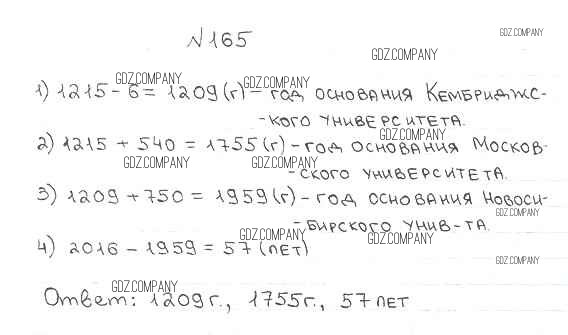 №165
GDZ.COMPANY
GDZ.COMPANY
GDZ.COMPANY
GDZ.COMPANY
1) 1215 - 6 = 1209 (г) - год основания Кембриджс-
-кого университета.
GDZ.COMPANY
2) 1215 + 540 = 1755 (г) - год основания Москов-
GDZ.COMPANY
GDZ.COMPANY
-ского университета.
3) 1209 + 750 = 1959 (г) - год основания Новоси-
GDZ.COMPANY
-бирского унив-та.
GDZ.COMPANY
GDZ.COMPANY
4) 2016 - 1959 = 57 (лет)
GDZ.COMPANY
GDZ.COMPANY
Ответ: 1209 г., 1755 г., 57 лет